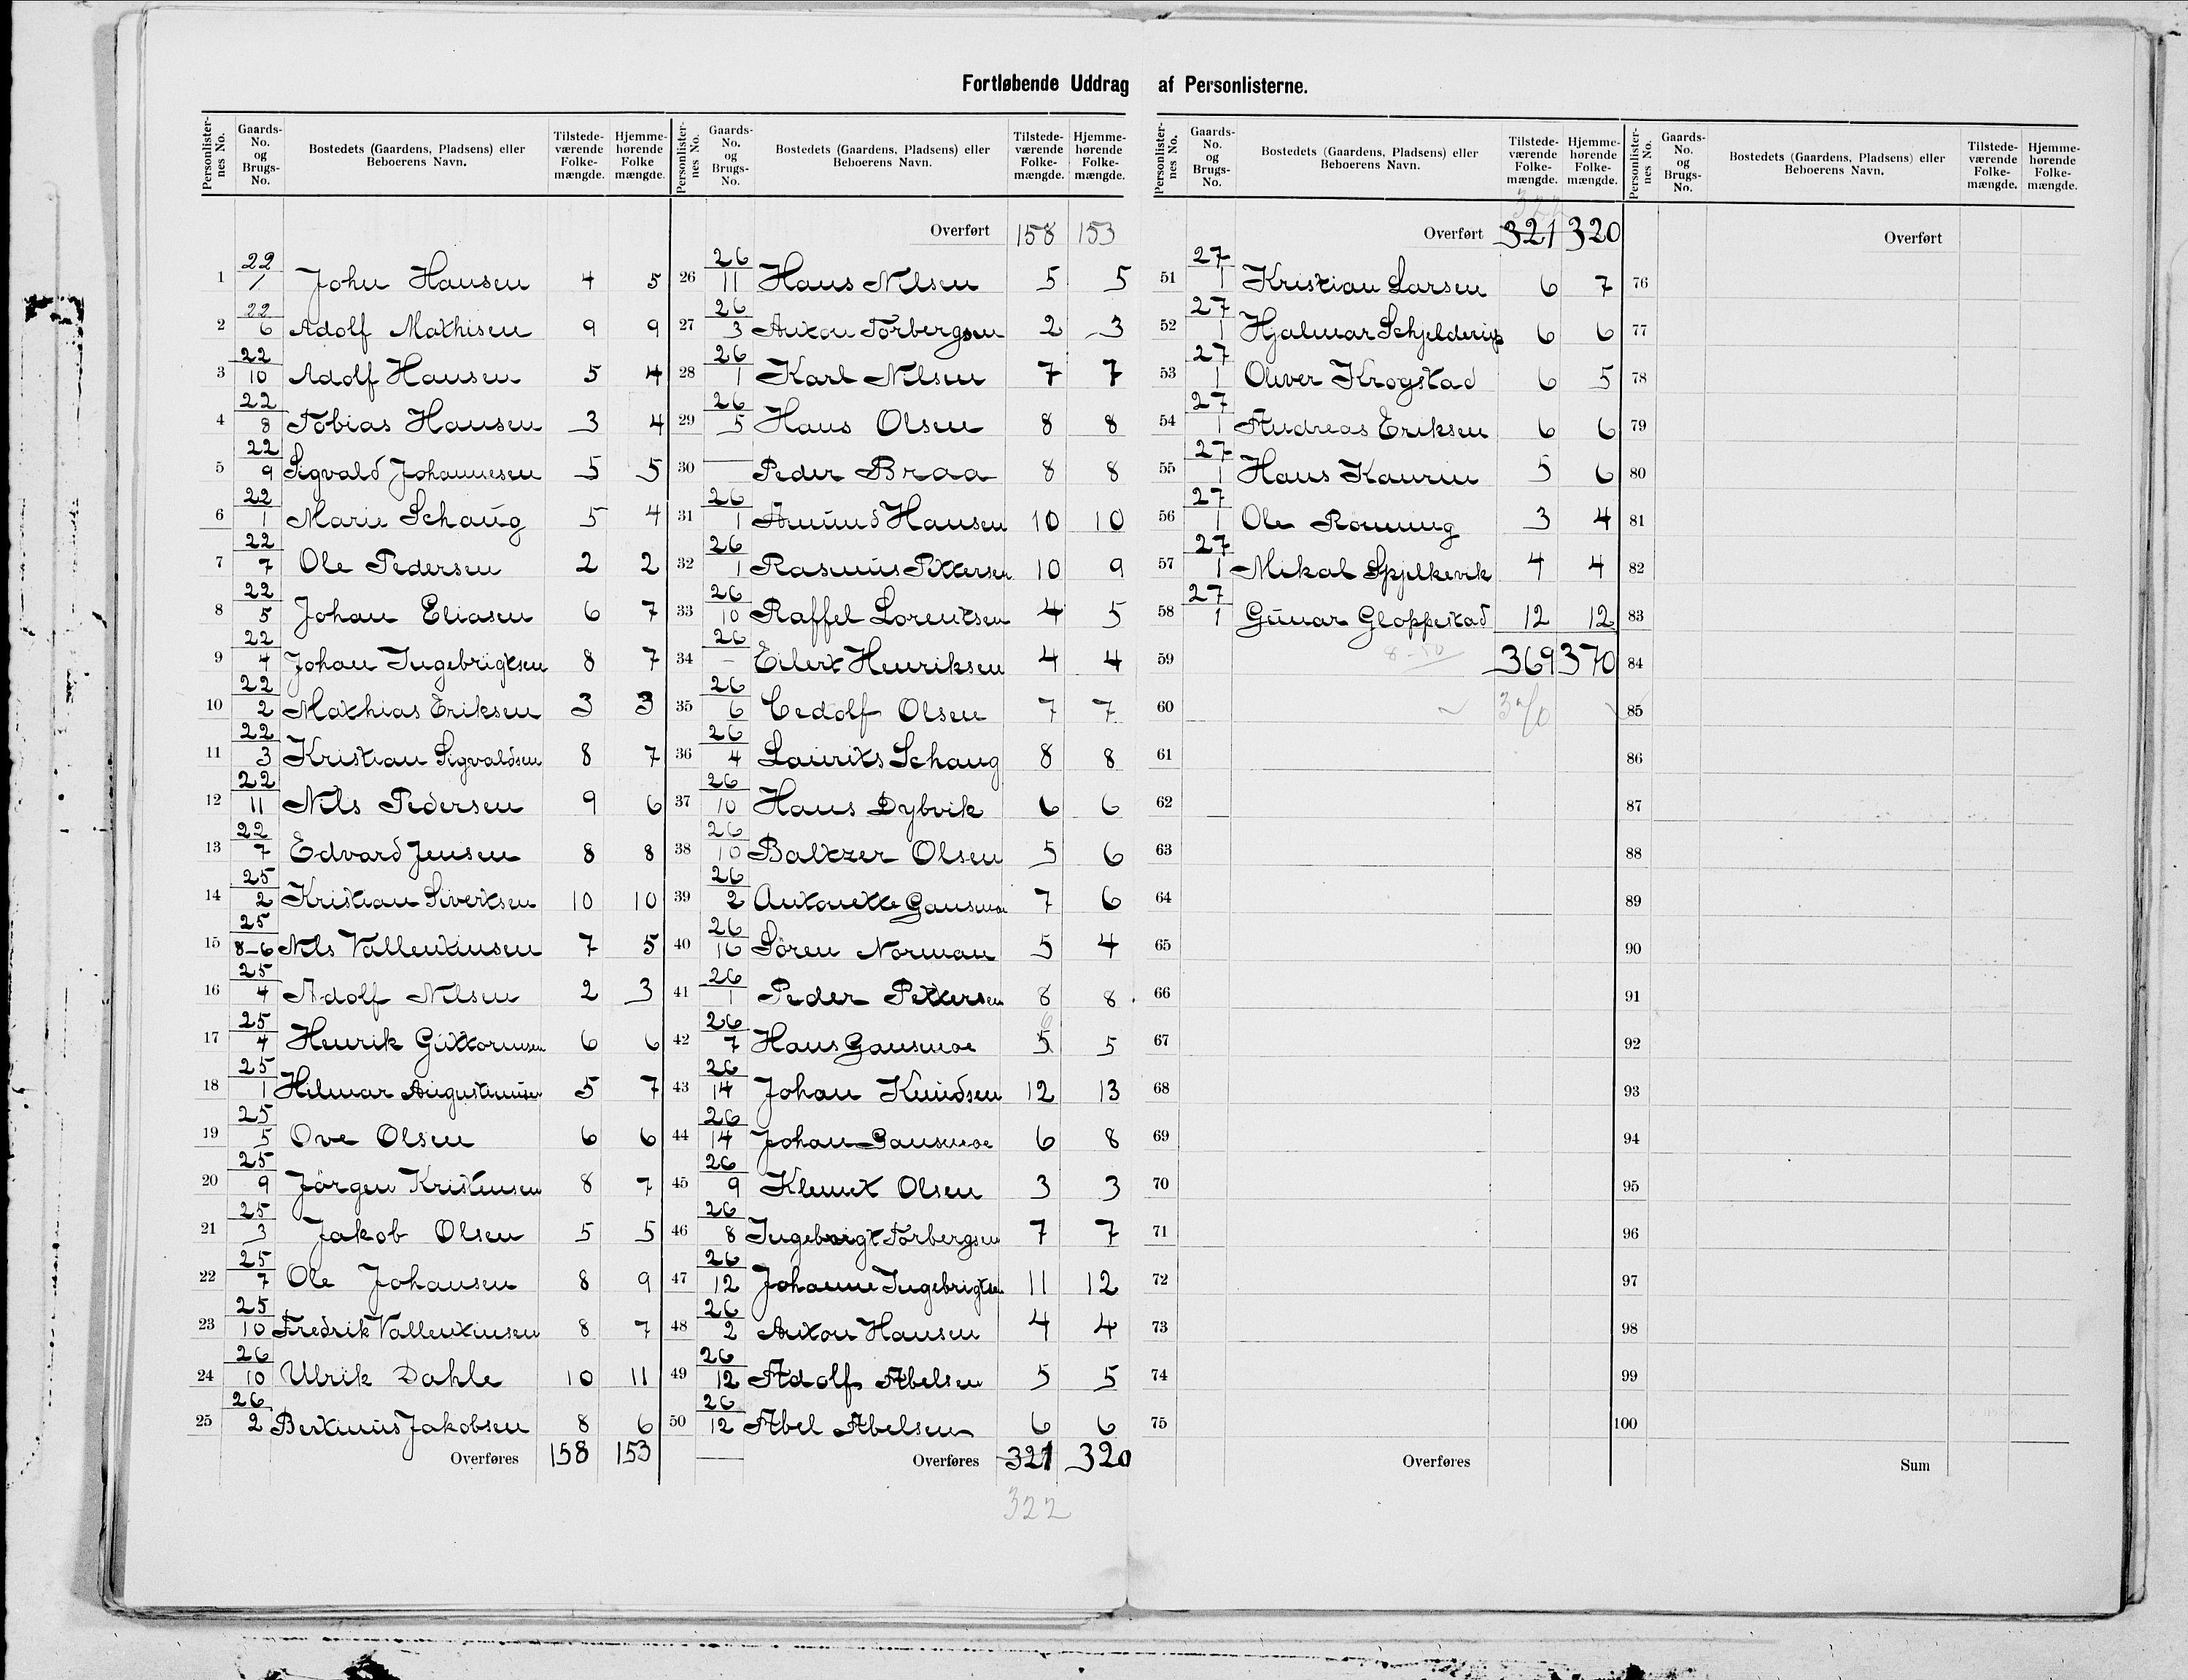 Fortløbende Uddrag af Personlisterne.
Personlisternes No. | Gaards-No. og Brugs-No. | Bostedets (Gaardens, Pladsens) eller Beboerens Navn. | Tilstedeværende Folkemængde. | Hjemmehørende Folkemængde.
1 22/1 John Hansen 4 5
2 22/6 Adolf Mathisen 9 9
3 22/10 Adolf Hansen 5 4
4 22/8 Tobias Hansen 3 4
5 22/9 Sigvald Johannesen 5 5
6 22/1 Marie Schaug 5 4
7 22/7 Ole Pedersen 2 2
8 22/5 Johan Eliasen 6 7
9 22/4 Johan Ingebrigtsen 8 7
10 22/2 Mathias Eriksen 3 3
11 22/3 Kristian Sigvaldsen 8 7
12 22/11 Nils Pedersen 9 6
13 22/7 Edvard Jensen 8 8
14 25/2 Kristian Sivertsen 10 10
15 25/8-6 Nils Vallentinsen 7 5
16 25/4 Adolf Nilsen 2 3
17 25/4 Henrik Guttormsen 6 6
18 25/1 Hilmar Augustinusen 5 7
19 25/5 Ove Olsen 6 6
20 25/9 Jörgen Kristensen 8 7
21 25/3 Jakob Olsen 5 5
22 25/7 Ole Johansen 8 9
23 25/10 Fredrik Vallentinsen 8 7
24 26/10 Ulrik Dahle 10 11
25 26/2 Bertinus Jakobsen 8 6
Overføres 158 153
Personlisternes No. | Gaards-No. og Brugs-No. | Bostedets (Gaardens, Pladsens) eller Beboerens Navn. | Tilstedeværende Folkemængde. | Hjemmehørende Folkemængde.
Overført 158 153
26 26/11 Hans Nilsen 5 5
27 26/3 Anton Torbergsen 2 3
28 26/1 Karl Nilsen 7 7
29 26/5 Hans Olsen 8 8
30 — Peder Braa 8 8
31 26/1 Amund Hansen 10 10
32 26/1 Rasmus Pettersen 10 9
33 26/10 Raffel Lorentsen 4 5
34 26/— Eilert Henriksen 4 4
35 26/6 Cedolf Olsen 7 7
36 26/4 Laurits Schaug 8 8
37 26/10 Hans Dybvik 6 6
38 26/10 Baltzer Olsen 5 6
39 26/2 Antonette Gausmoe 7 6
40 26/10 Sören Norman 5 4
41 26/1 Peder Pettersen 8 8
42 26/7 Hans Gausmoe 5 6 5
43 26/14 Johan Knudsen 12 13
44 26/14 Johan Gausmoe 6 8
45 26/9 Klemet Olsen 3 3
46 26/8 Ingebrigt Torbergsen 7 7
47 26/12 Johanne Ingebrigtsen 11 12
48 26/2 Anton Hansen 4 4
49 26/12 Adolf Abelsen 5 5
50 26/12 Abel Abelsen 6 6
Overføres 321 320
322
Personlisternes No. | Gaards-No. og Brugs-No. | Bostedets (Gaardens, Pladsens) eller Beboerens Navn. | Tilstedeværende Folkemængde. | Hjemmehørende Folkemængde.
322
Overført 321 320
51 27/1 Kristian Larsen 6 7
52 27/1 Hjalmar Schjelderup 6 6
53 27/1 Oliver Krogstad 6 5
54 27/1 Andreas Eriksen 6 6
55 27/1 Hans Kaurin 5 6
56 27/1 Ole Rönning 3 4
57 27/1 Mikal Spjelkevik 4 4
58 27/1 Gunar Gloppestad 12 12
59 8-50 369 370
60 370
61
62
63
64
65
66
67
68
69
70
71
72
73
74
75
Overføres
Personlisternes No. | Gaards-No. og Brugs-No. | Bostedets (Gaardens, Pladsens) eller Beboerens Navn. | Tilstedeværende Folkemængde. | Hjemmehørende Folkemængde.
Overført
76
77
78
79
80
81
82
83
84
85
86
87
88
89
90
91
92
93
94
95
96
97
98
99
100
Sum